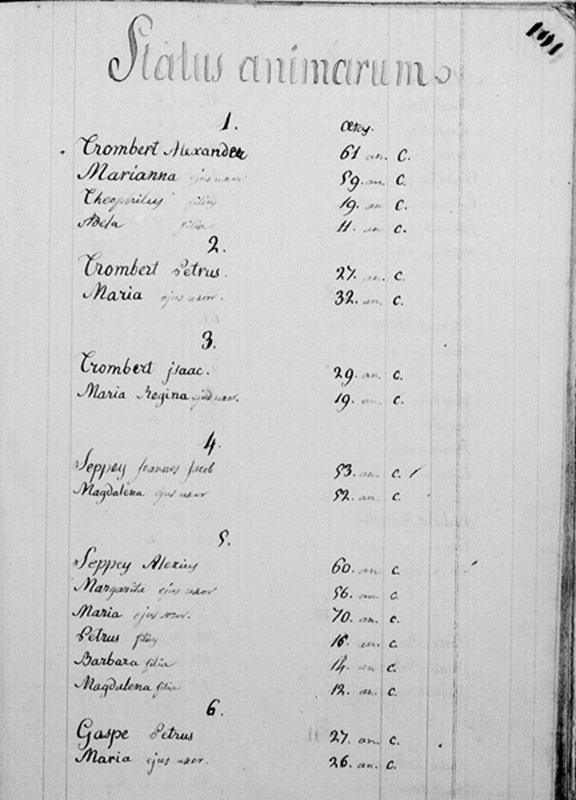 191
Status animarum.
1. Ætas.
Trombert Alexander 61 an. C.
Marianna ejus uxor 59. an. C.
Theophilus filius 19. an. C.
Adela filia 11. an C.
2.
Trombert Petrus. 27. an. C.
Maria ejus uxor. 32. an. C.
3.
Trombert jsaac. 29. an. C.
Maria Regina ejus uxor. 19. an. C.
4.
Seppey Joannes Jacob 53. an. C.
Magdalena ejus uxor 52. an. C.
5.
Seppey Alexius 60. an C.
Margarita ejus uxor 56. an. C.
Maria ejus soror. 70. an. C.
Petrus filius 16. an. C.
Barbara filia 14. an C.
Magdalena filia 12. an. C.
6.
Gaspe Petrus 27. an. C.
Maria ejus uxor. 26. an. C.